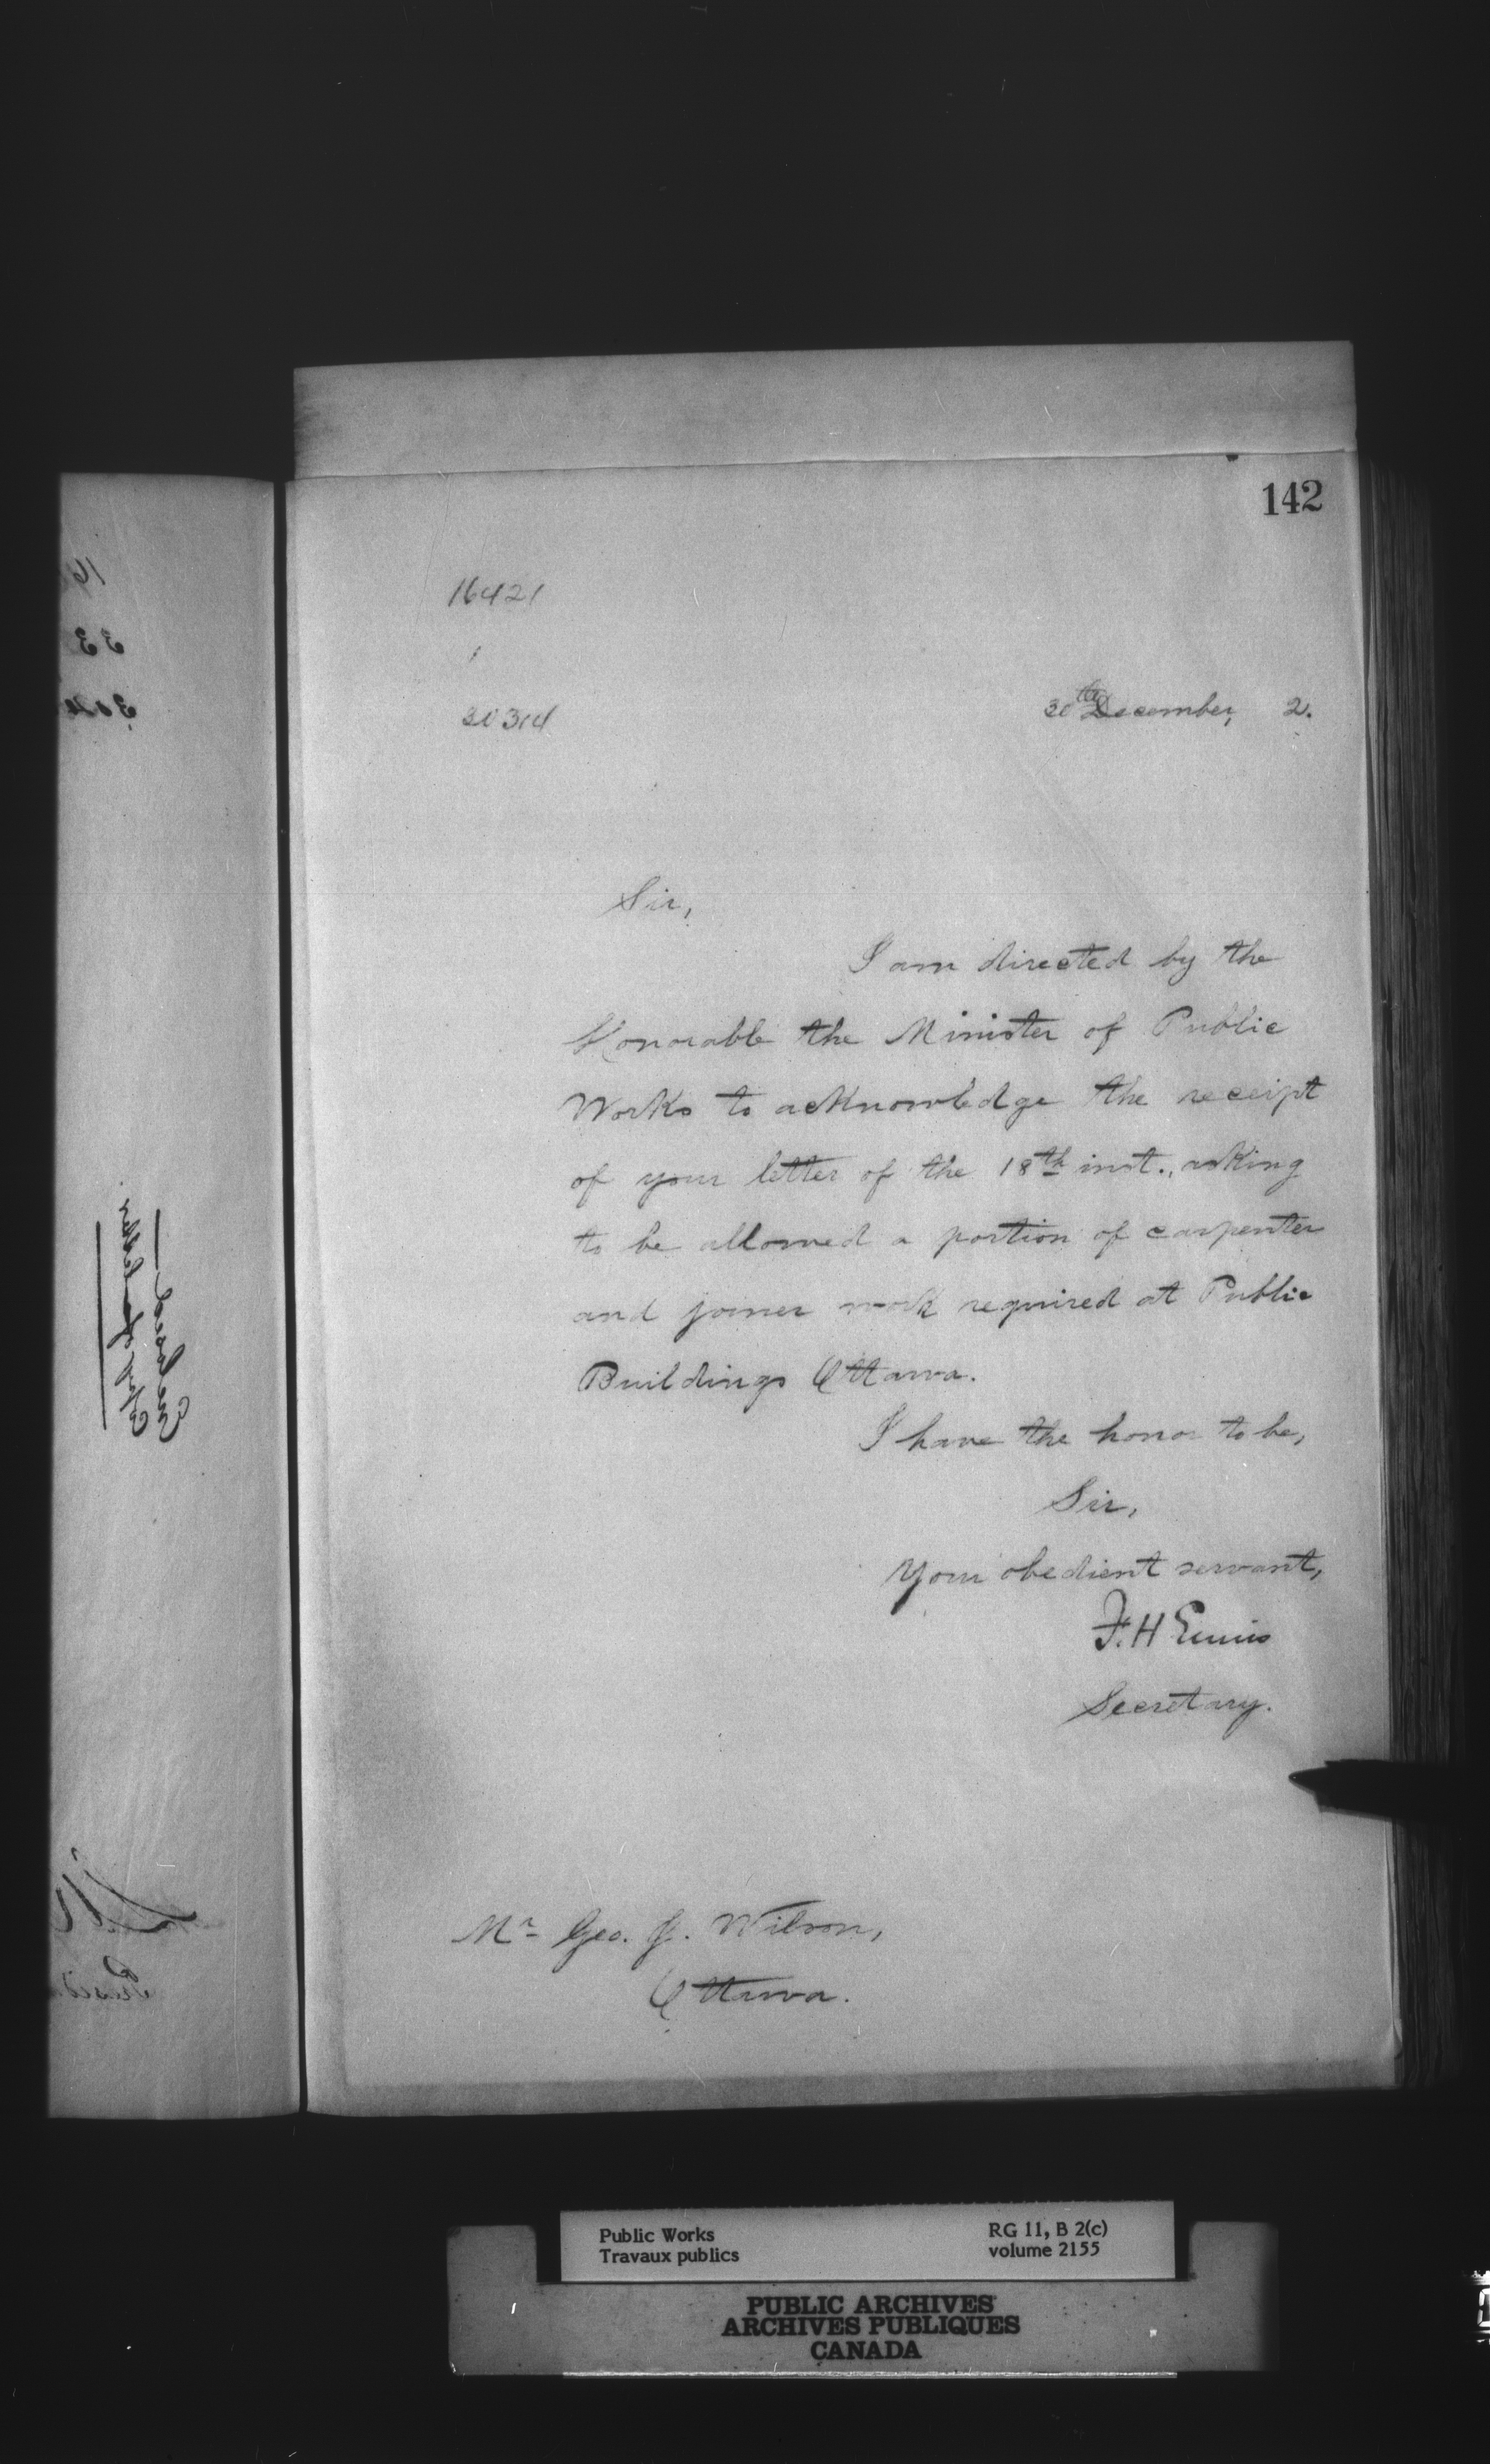 142
16421
1
30314
30th December, 2.
Sir,
I am directed by the
Honorable the Minister of Public
Works to acknowledge the receipt
of your letter of the 18th inst., asking
to be allowed a portion of carpenter
and joiner work required at Public
Buildings Ottawa.
I have the honor to be,
Sir,
Your obedient servant,
F. H Ennis
Secretary.
Mr Geo. J. Wilson,
Ottawa.
Enclosed
Copy of letter
Public Works
Travaux publics
RG 11, B 2(c)
volume 2155
PUBLIC ARCHIVES
ARCHIVES PUBLIQUES
CANADA